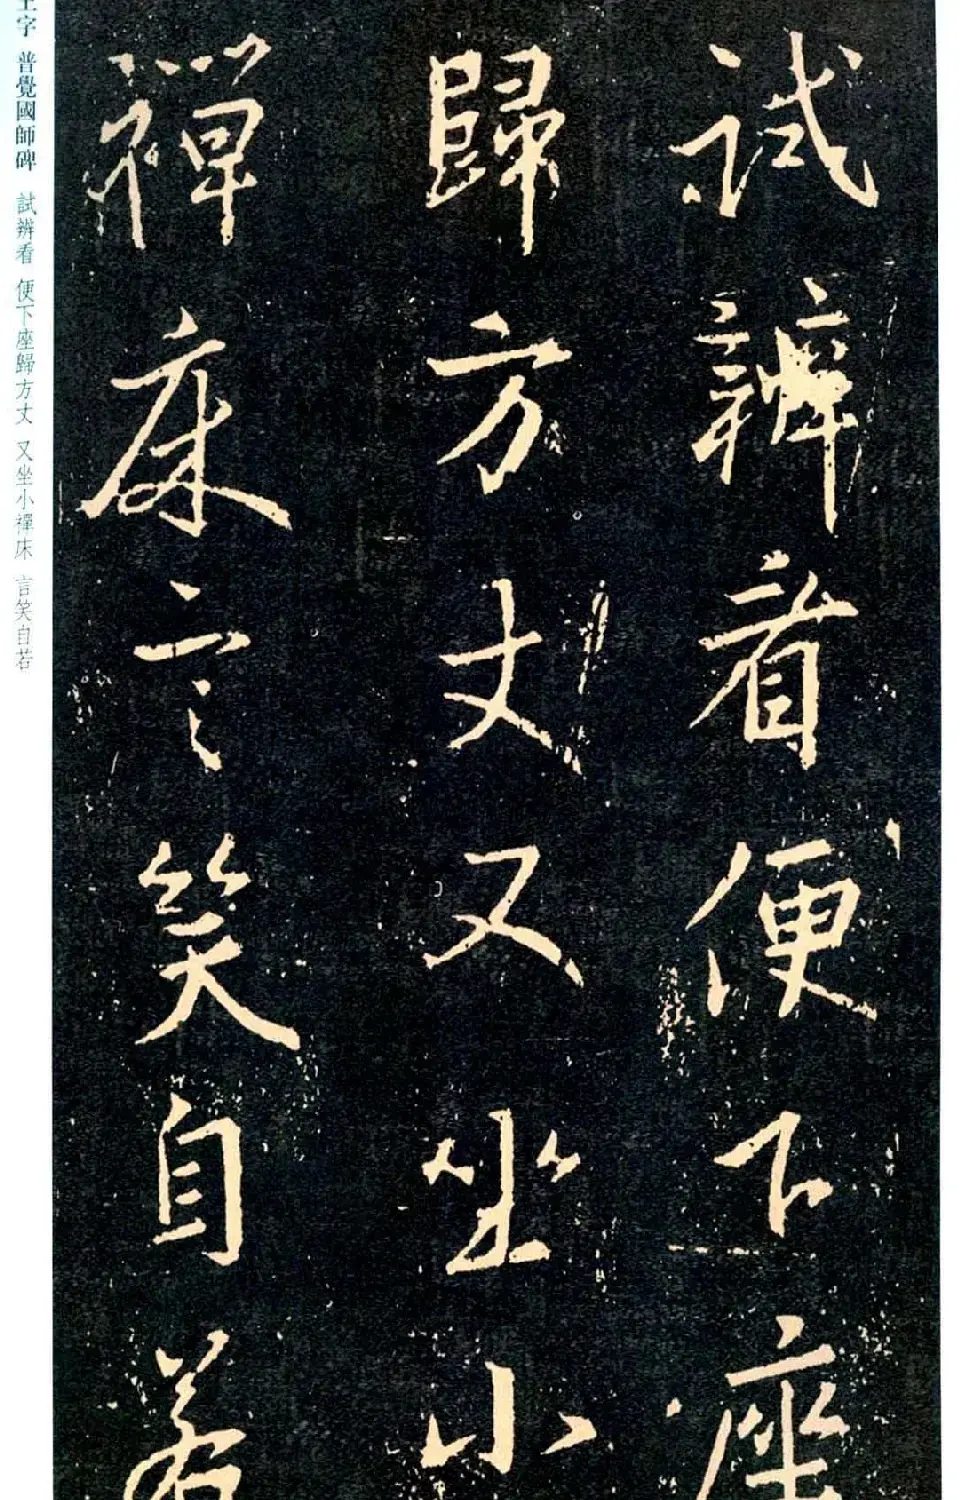 試辨看便下座
歸方丈又坐小
禪床言笑自若
王字 普覺國師碑 試辨看 便下座歸方丈 又坐小禪床 言笑自若